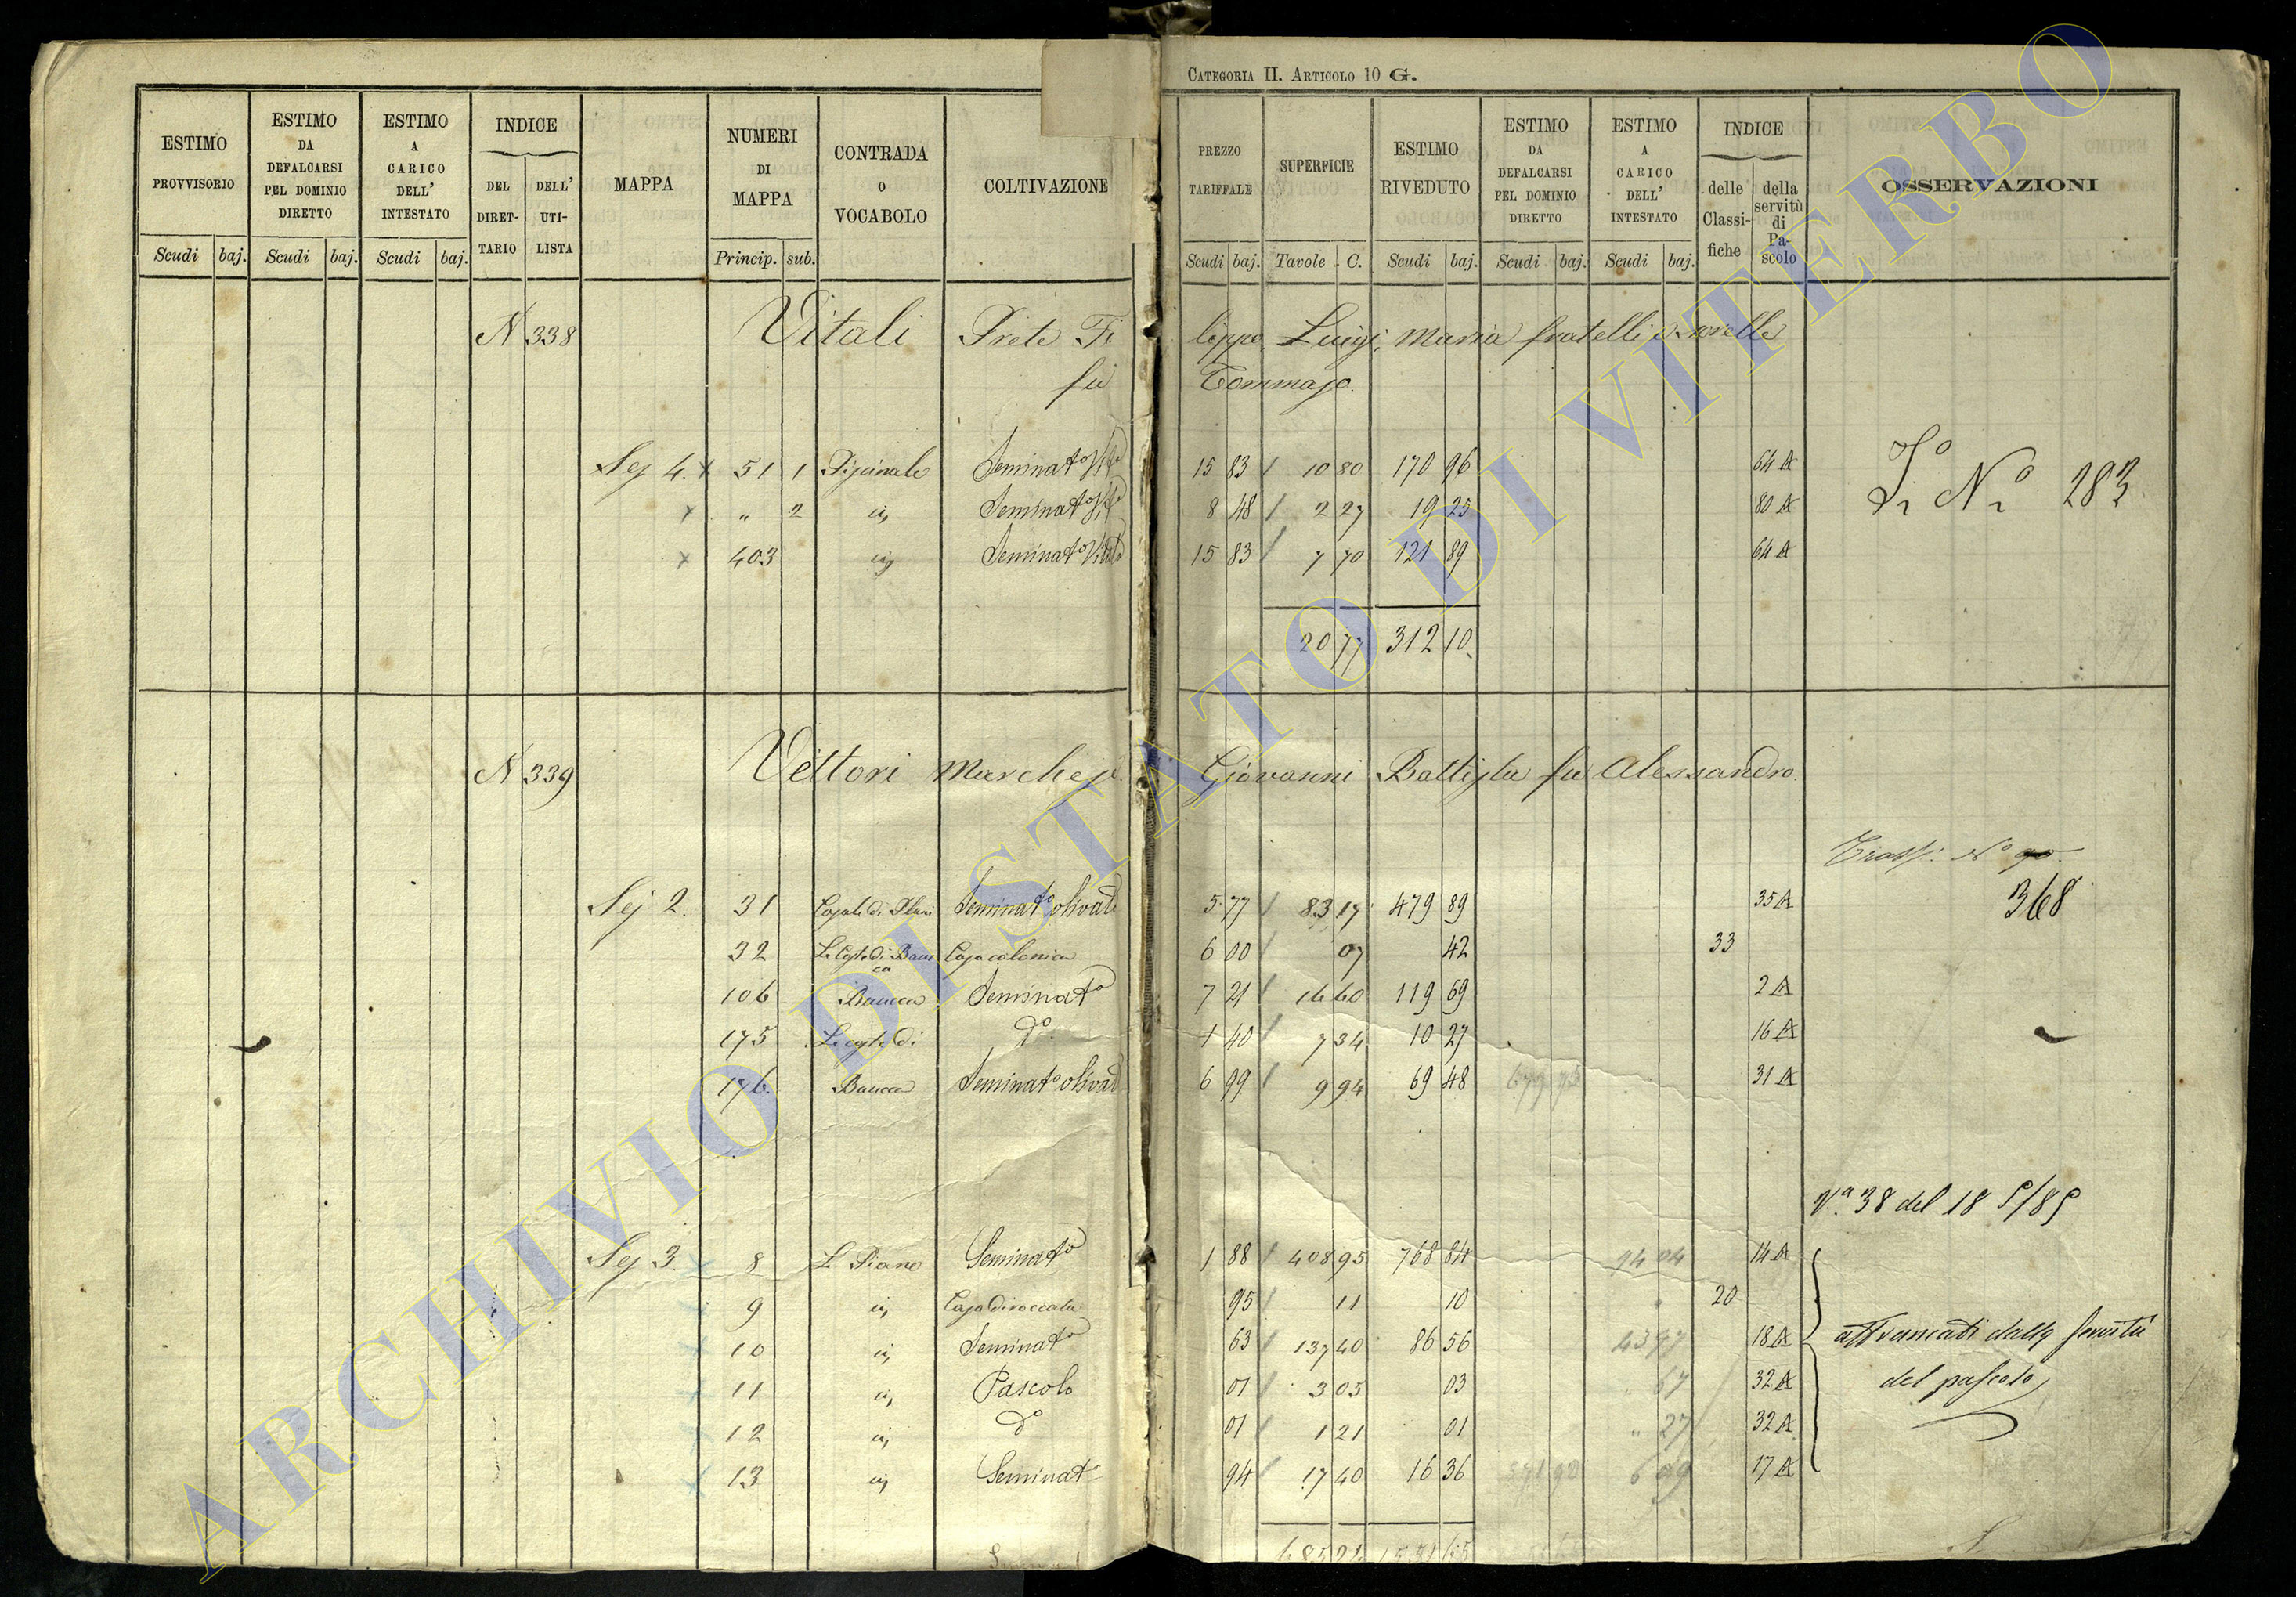 CATEGORIA II. ARTICOLO 10 G.
ESTIMO PROVVISORIO | ESTIMO DA DEFALCARSI PEL DOMINIO DIRETTO | ESTIMO A CARICO DELL' INTESTATO | INDICE | MAPPA | NUMERI DI MAPPA | CONTRADA O VOCABOLO | COLTIVAZIONE | PREZZO TARIFFALE | SUPERFICIE | ESTIMO RIVEDUTO | ESTIMO DA DEFALCARSI PEL DOMINIO DIRETTO | ESTIMO A CARICO DELL' INTESTATO | INDICE | OSSERVAZIONI
DEL DIRETTARIO | DELL' UTILISTA | delle Classifiche | della servitù di Pascolo
Scudi baj. | Scudi baj. | Scudi baj. | Princip. sub. | Scudi baj. | Tavole C. | Scudi baj. | Scudi baj. | Scudi baj.
N 338 Vitali Prete Filippo, Luigi, Maria fratelli e sorelle
fu Tommaso.
Sez 4. x 51 1 Seminato Vito 15 83 / 10 80 170 96 64 A
x " 2 Seminato Vito 8 48 / 2 27 19 25 80 A No 283
x 403 Seminato Vitato 15 83 / 7 70 121 89 64 A
20 77 312 10
N 339 Vittori Marchese Giovanni Battista fu Alessandro.
Trasf: No 90.
Sez 2. 31 Seminato olivato 5 77 / 83 17 479 89 35 A 368
32 Le Coste di Baucca Casa colonica 6 00 / 07 42 33
106 Baucca Seminato 7 21 / 16 60 119 69 2 A
175 Le coste di do 1 40 / 7 34 10 27 16 A
176. Baucca Seminato olivato 6 99 / 9 94 69 48 679 75 31 A
Va. 38 del 18 5/85
Sez 3. 8 Le Piane Seminato 1 88 / 408 95 768 84 94 04 14 A
9 Casa diroccata 95 / 11 10 20
10 Seminato 63 / 137 40 86 56 43 97 18 A affrancati dalla servitù
11 Pascolo 01 / 3 05 03 67 32 A del pascolo
12 do 01 / 1 21 01 " 27 32 A
13 Seminato 94 / 17 40 16 36 6 09 17 A
685 24 1551 65
ARCHIVIO DI STATO DI VITERBO